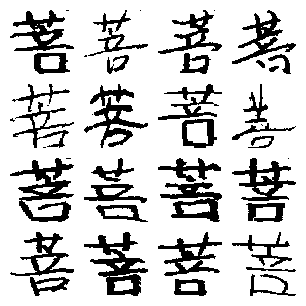 菩菩菩菩
菩菩菩菩
菩菩菩菩
菩菩菩菩